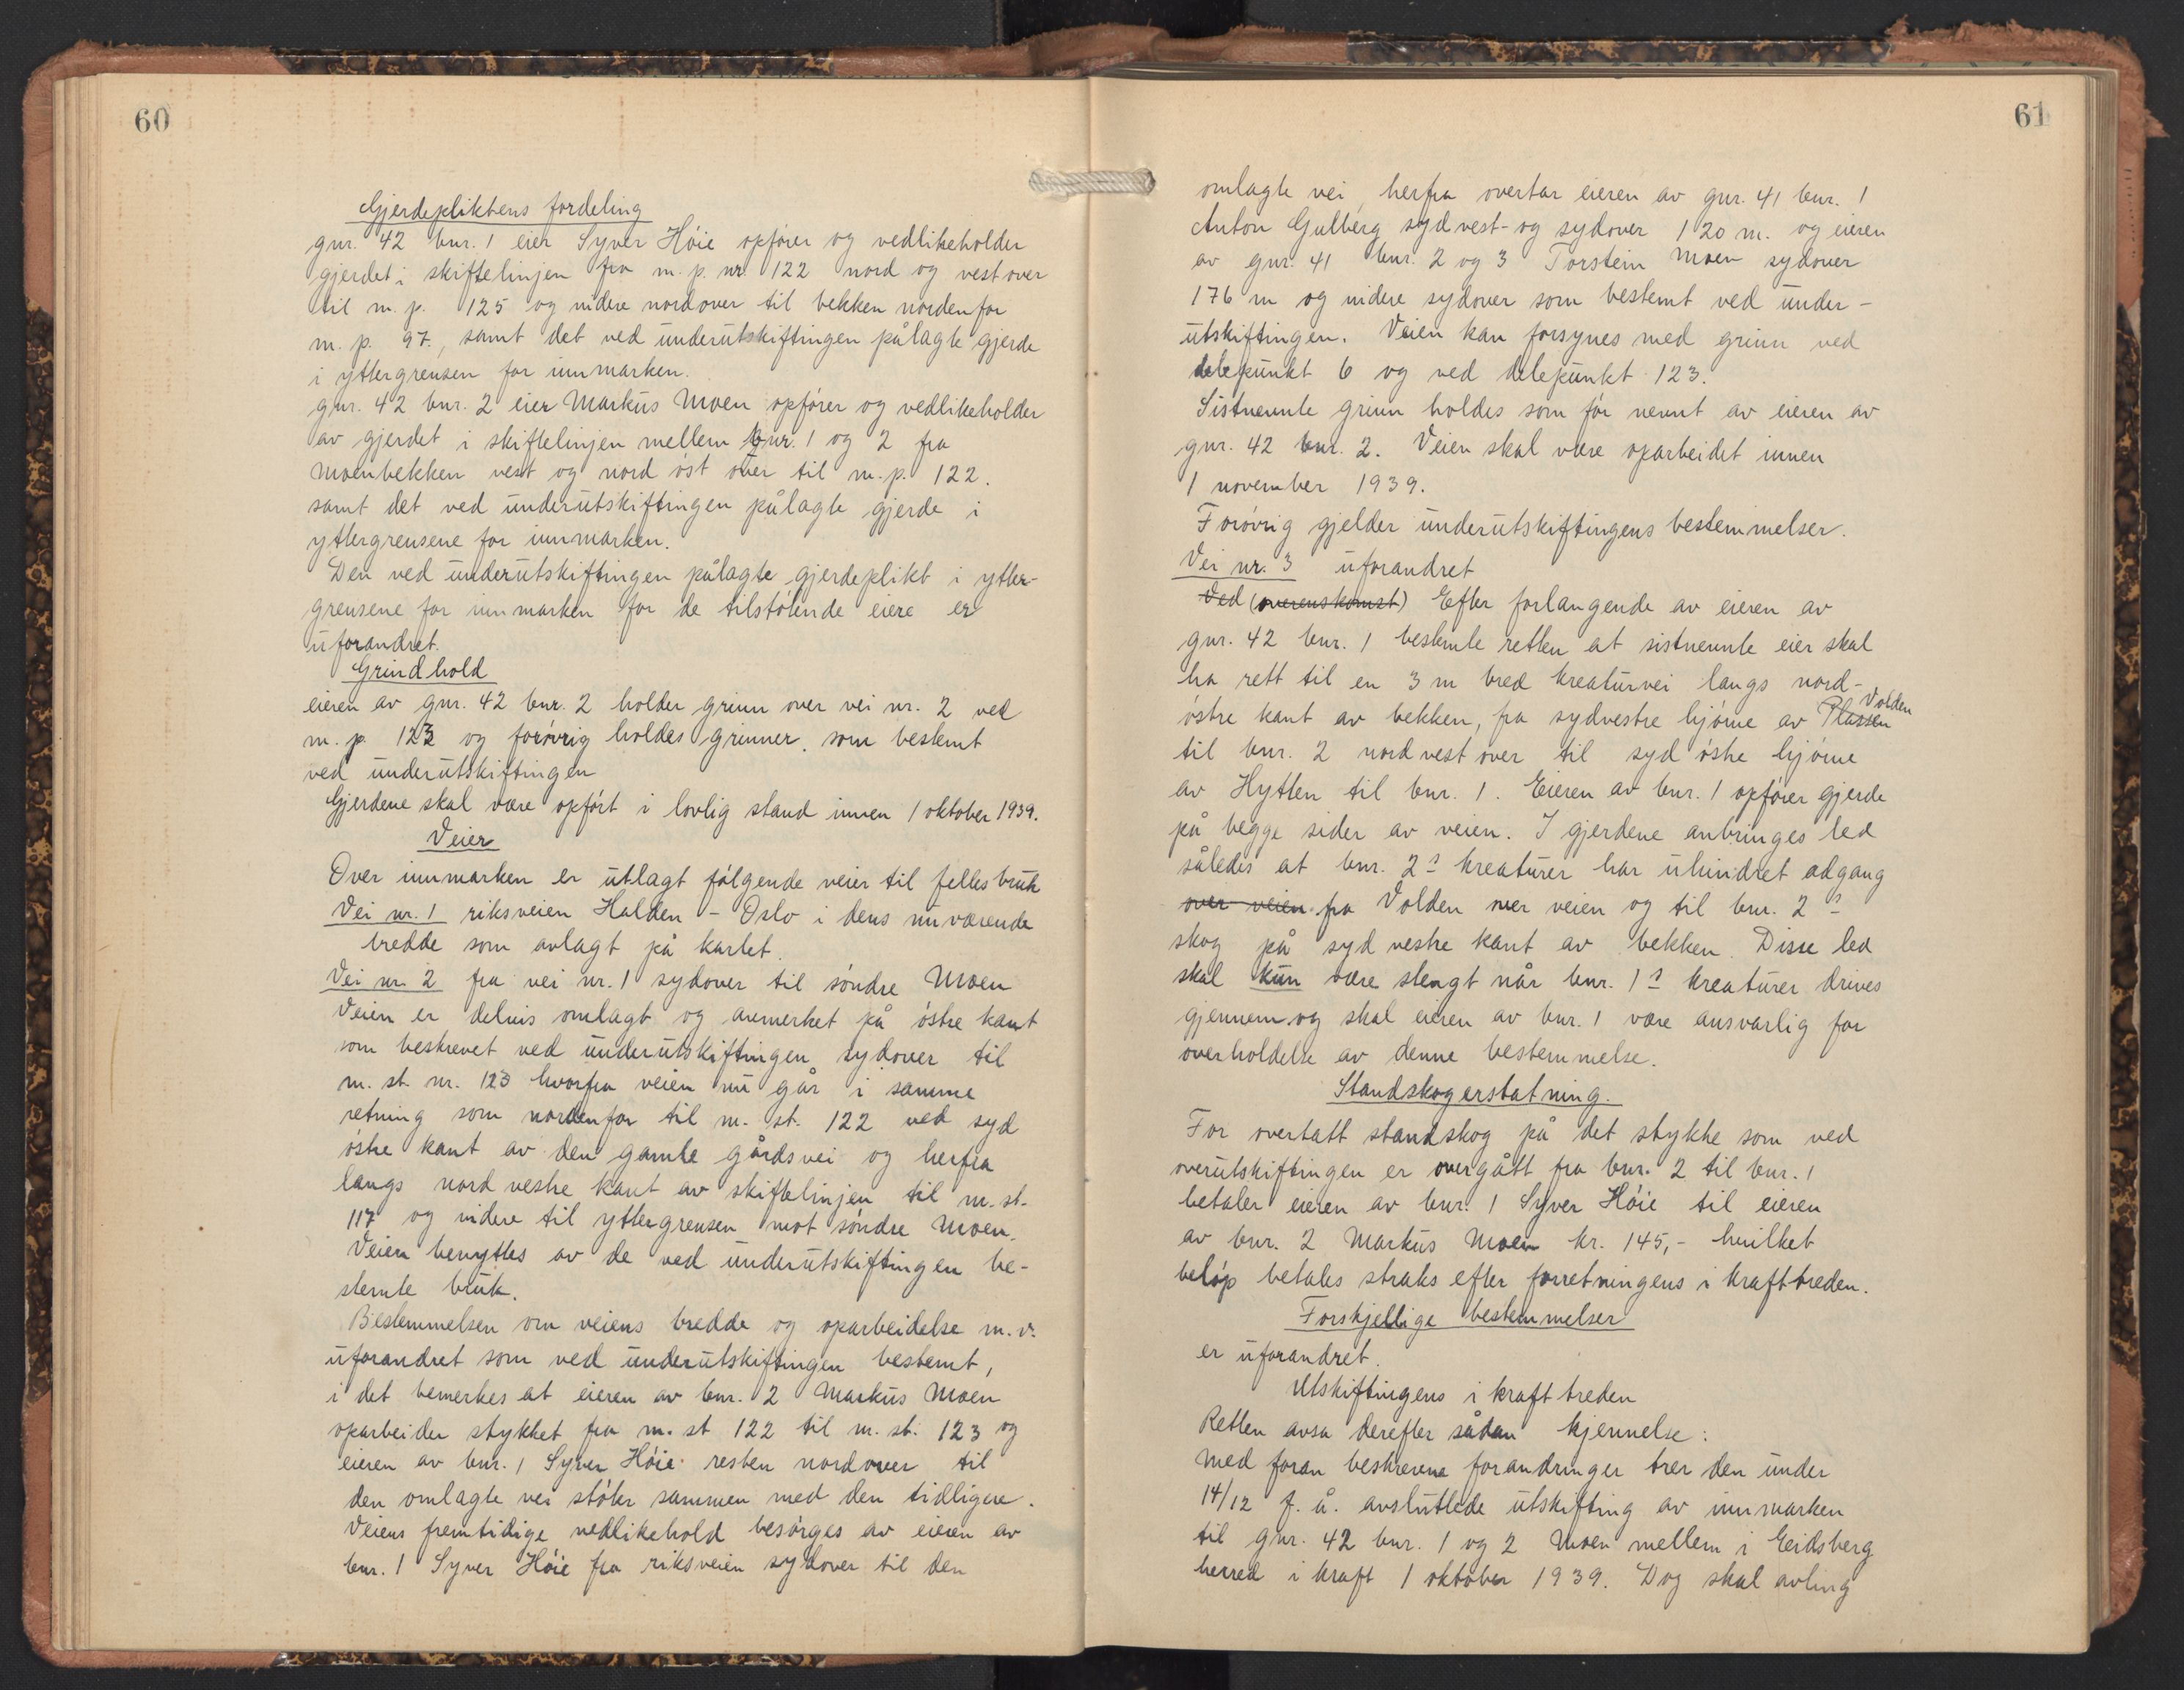 60
Gjerdepliktens fordeling
gnr. 42 bnr. 1 eier Syver Höie opförer og vedlikeholder
gjerdet i skiftelinjen fra m. p. nr. 122 nord og vestover
til m. p. 125 og videre nordover til bekken nordenfor
m. p. 97., samt det ved underutskiftingen pålagte gjerde
i yttergrensen for innmarken.
gnr. 42 bnr. 2 eier Markus Moen opförer og vedlikeholder
av gjerdet i skiftelinjen mellem bnr. 1 og 2 fra
Moenbekken vest og nord öst over til m. p. 122.
samt det ved underutskiftingen pålagte gjerde i
yttergrensene for innmarken.
Den ved underutskiftingen pålagte gjerdeplikt i ytter-
grensene for innmarken for de tilstötende eiere er
uforandret.
Grindhold
eieren av gnr. 42 bnr. 2 holder grinn over vei nr. 2 ved
m. p. 123 og forövrig holdes grinner som bestemt
ved underutskiftingen
Gjerdene skal være opfört i lovlig stand innen 1 oktober 1939.
Veier
Over innmarken er utlagt fölgende veier til felles bruk
Vei nr. 1 riksveien Halden - Oslo i dens nuværende
bredde som avlagt på kartet.
Vei nr. 2 fra vei nr. 1 sydover til söndre Moen
Veien er delvis omlagt og avmerket på östre kant
som beskrevet ved underutskiftingen sydover til
m. st. nr. 123 hvorfra veien nu går i samme
retning som nordenfor til m. st. 122 ved syd
östre kant av den gamle gårdsvei og herfra
langs nord vestre kant av skiftelinjen til m. st.
117 og videre til yttergrensen mot söndre Moen.
Veien benyttes av de ved underutskiftingen be-
stemte bruk.
Bestemmelsen om veiens bredde og oparbeidelse m. v.
uforandret som ved underutskiftingen bestemt,
i det bemerkes at eieren av bnr. 2 Markus Moen
oparbeider stykket fra m. st 122 til m. st. 123 og
eieren av bnr. 1 Syver Höie resten nordover til
den omlagte vei stöter sammen med den tidligere.
Veiens fremtidige vedlikehold besörges av eieren av
bnr. 1 Syver Höie fra riksveien sydover til den
61
omlagte vei, herfra overtar eieren av gnr. 41 bnr. 1
Anton Gulberg syd vest- og sydover 120 m. og eieren
av gnr. 41 bnr. 2 og 3 Torstein Moen sydover
176 m og videre sydover som bestemt ved under-
utskiftingen. Veien kan forsynes med grinn ved
delepunkt 6 og ved delepunkt 123.
Sistnevnte grinn holdes som för nevnt av eieren av
gnr. 42 bnr. 2. Veien skal være oparbeidet innen
1 november 1939.
Forövrig gjelder underutskiftingens bestemmelser.
Vei nr. 3 uforandret
Ved (overenskomst) Efter forlangende av eieren av
gnr. 42 bnr. 1 bestemte retten at sistnevnte eier skal
ha rett til en 3 m bred kreaturvei langs nord-
östre kant av bekken, fra sydvestre hjörne av Plassen Volden
til bnr. 2 nord vest over til syd östre hjörne
av Hytten til bnr. 1. Eieren av bnr. 1 opförer gjerde
på begge sider av veien. I gjerdene anbringes led
således at bnr. 2s kreaturer har uhindret adgang
over veien fra Volden over veien og til bnr. 2s
skog på syd vestre kant av bekken. Disse led
skal kun være stengt når bnr. 1s kreaturer drives
gjennem og skal eieren av bnr. 1 være ansvarlig for
overholdelse av denne bestemmelse.
Standskogerstatning.
For overtatt standskog på det stykke som ved
overutskiftingen er overgått fra bnr. 2 til bnr. 1
betaler eieren av bnr. 1 Syver Höie til eieren
av bnr. 2 Markus Moen kr. 145,- hvilket
belöp betales straks efter forretningens i krafttreden.
Forskjellige bestemmelser
er uforandret.
Utskiftingens i kraft treden
Retten avsa derefter sådan kjennelse:
Med foran beskrevne forandringer trer den under
14/12 f. å. avsluttede utskifting av innmarken
til gnr. 42 bnr. 1 og 2 Moen mellem i Eidsberg
herred i kraft 1 oktober 1939. Dog skal avling